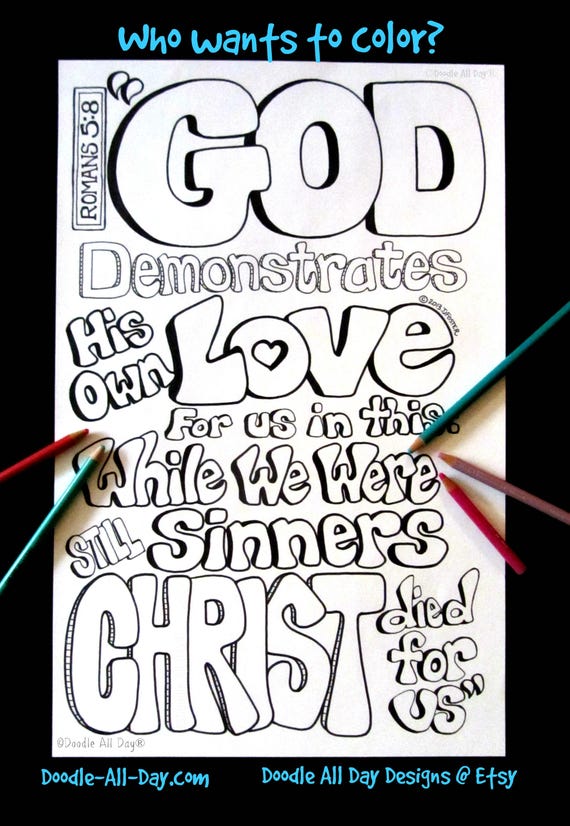 Who wants to color?
©Doodle All Day®
ROMANS 5:8
"GOD
Demonstrates
©2013 J.FOSTER
His Own Love
For us in this:
While We Were
STILL Sinners
CHRIST died for us"
©Doodle All Day®
Doodle-All-Day.com
Doodle All Day Designs @ Etsy